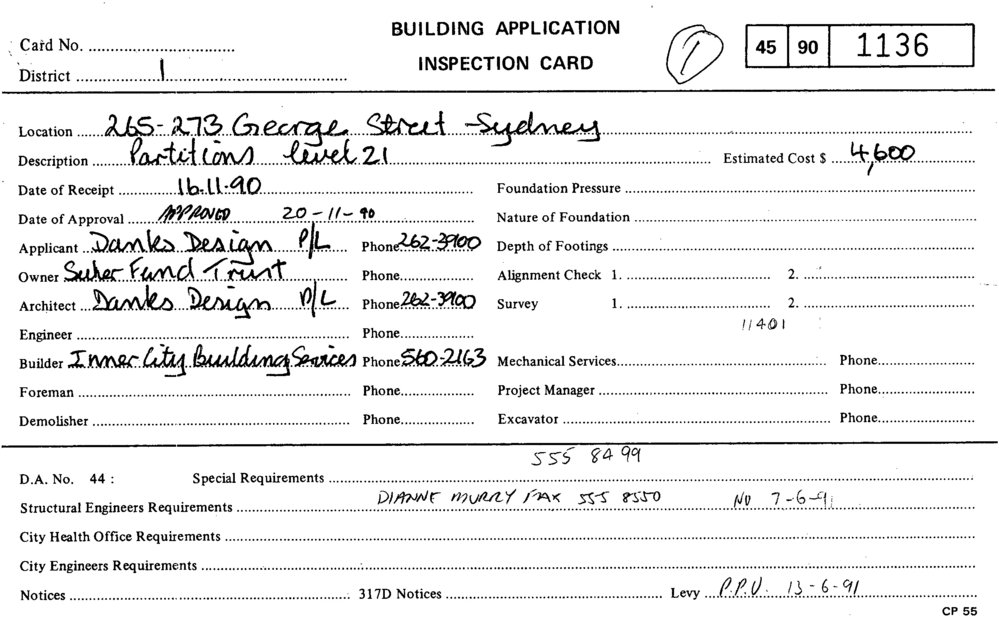 BUILDING APPLICATION
INSPECTION CARD
Card No. ..................
District ........ 1 ..................
1
45 90 1136
Location ...... 265-273 George Street - Sydney
Description ...... Partitions level 21 ...... Estimated Cost $ ... 4,600
Date of Receipt ...... 16.11.90 Foundation Pressure ..................
Date of Approval ... APPROVED 20-11-90 Nature of Foundation ..................
Applicant ... Danks Design P/L Phone 262-3900 Depth of Footings ..................
Owner Super Fund Trust Phone............ Alignment Check 1. .................. 2. ..................
Architect ... Danks Design P/L Phone 262-3900 Survey 1. .................. 2. ..................
11401
Engineer .................. Phone............
Builder Inner City Building Services Phone 560-2163 Mechanical Services.................. Phone............
Foreman .................. Phone............ Project Manager .................. Phone............
Demolisher .................. Phone............ Excavator .................. Phone............
555 8499
D.A. No. 44 : Special Requirements ..................
DIANNE MURRY FAX 555 8550 NU 7-6-91
Structural Engineers Requirements ..................
City Health Office Requirements ..................
City Engineers Requirements ..................
Notices .................. 317D Notices .................. Levy ... P.P.U. 13-6-91
CP 55